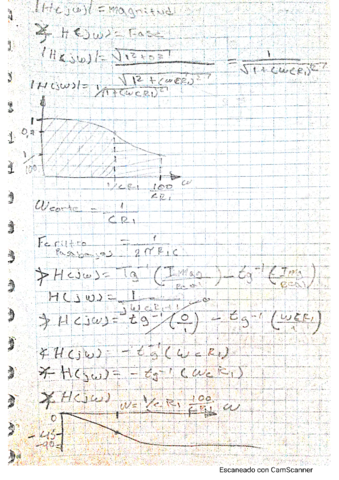 |H(jω)| = magnitud
∡ H(jω) = Fase
|H(jω)| = √(1² + 0²) / √(1² + (ωCR1)²) = 1 / √(1 + (ωCR1)²)
|H(jω)|
1
1/100
1/CR1 100/CR1 ω
ω corte = 1/CR1
F = 1/2πR1C
∡ H(jω) = Tg⁻¹ (Imag/Real) - tg⁻¹ (Img/Real)
H(jω) = 1/jωCR1+1
∡ H(jω) = tg⁻¹ (0/1) - tg⁻¹ (ωCR1/1)
∡ H(jω) = -tg⁻¹ (ωCR1)
∡ H(jω) = -tg⁻¹ (ωCR1)
∡ H(jω) ω = 1/CR1 100/CR1 ω
0
-45
-90
Escaneado con CamScanner